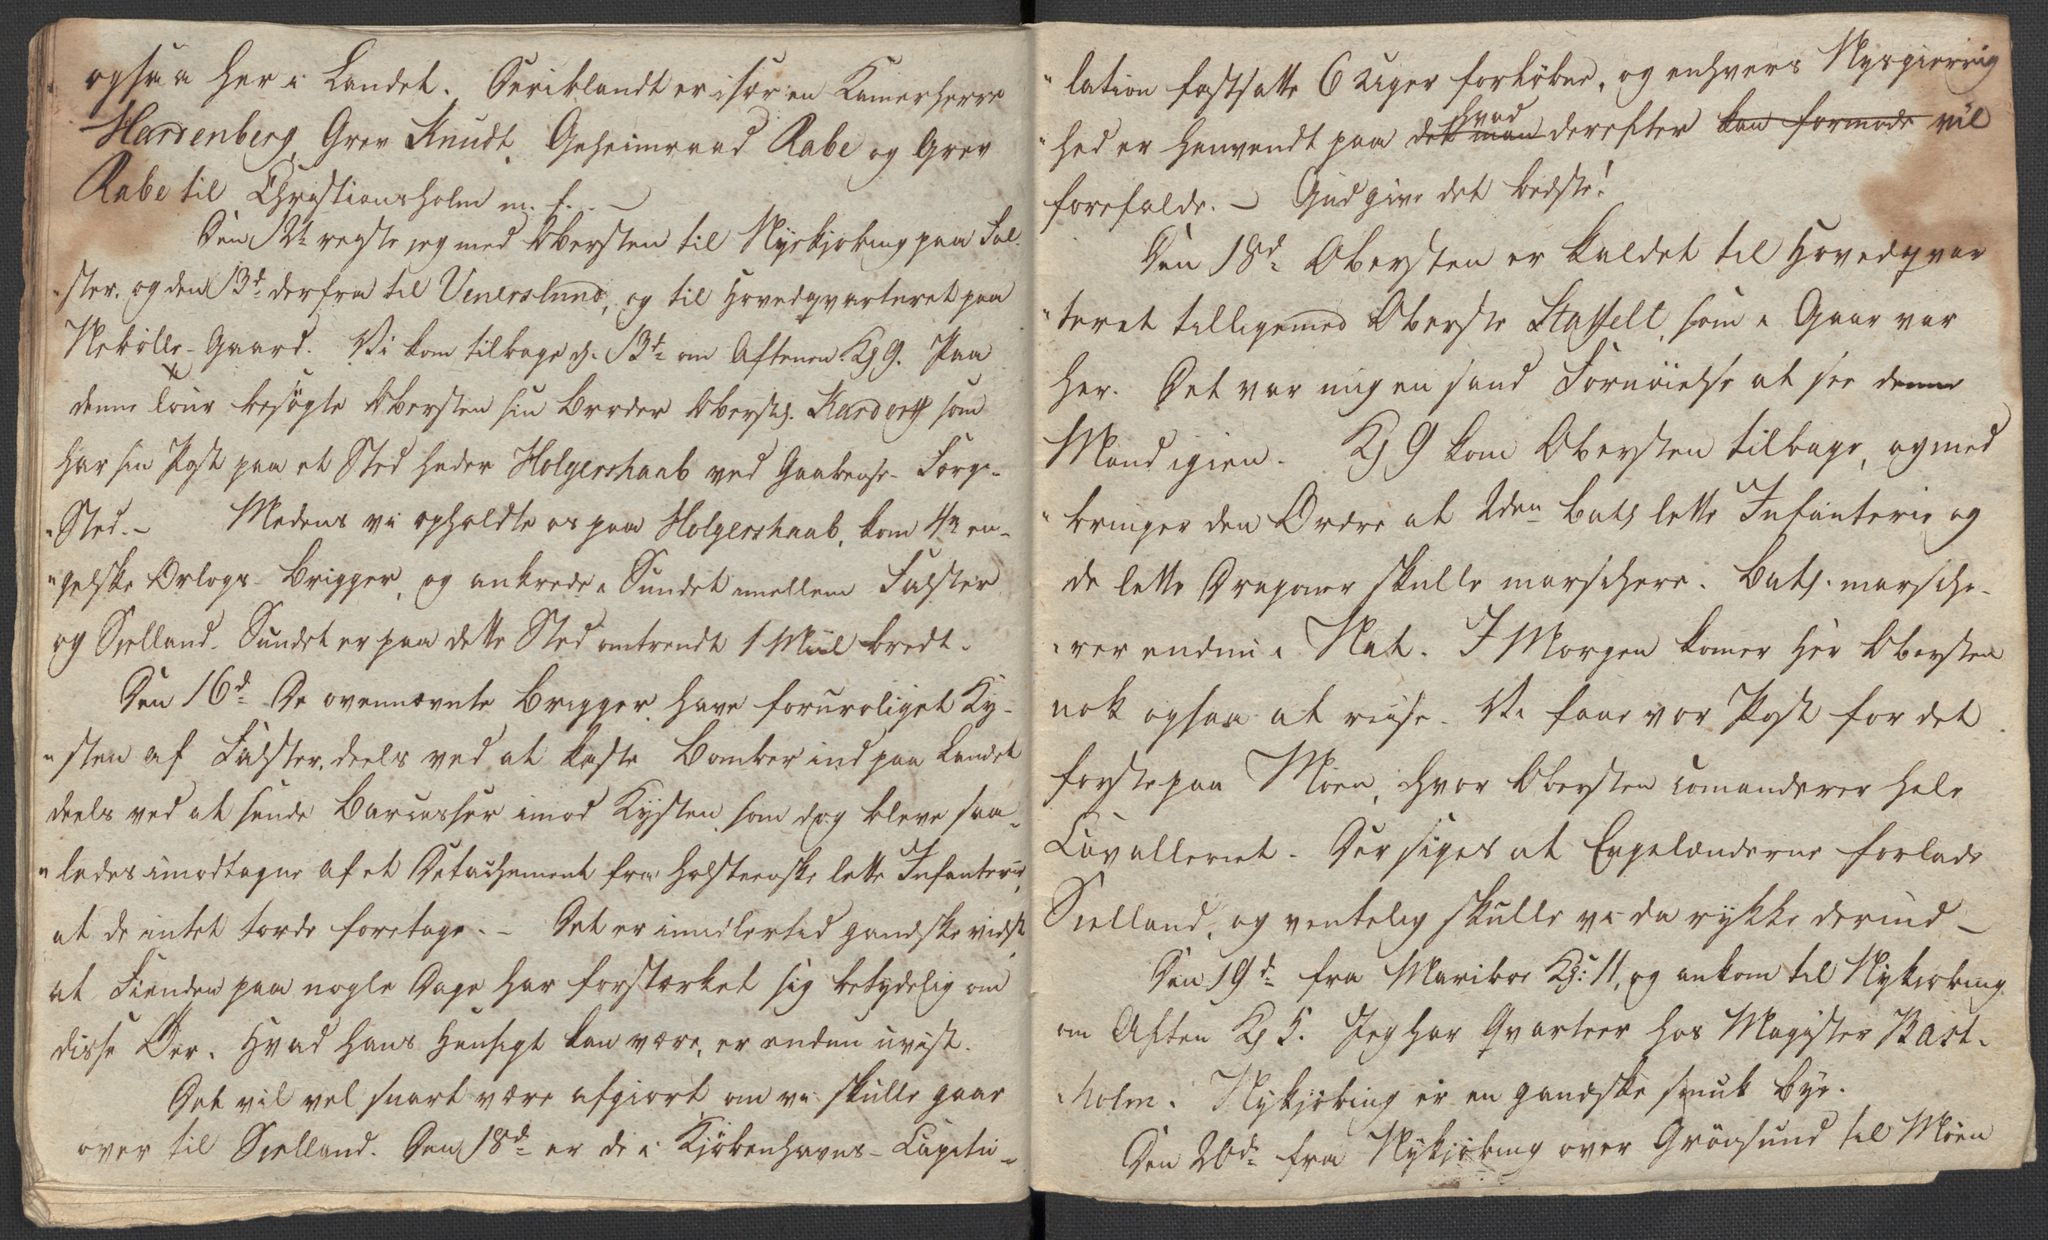 ogsaa her i Landet. Deriblandt er især en Kamerherre
Hardenberg, Grev Knudt, Geheimraad Rabe og Grev
Rabe til Christiansholm m. f. –
Den 12t reyste jeg med Obersten til Nyekjøbing paa Fal-
ster, og den 13d derfra til Venerslund, og til Hovedqvarteret paa
Gaard. Vi kom tilbage d. 13d om Aftenen Kl 9. Paa
denne Tour besøgte Obersten sin Broder Oberstl. Kardorff som
har sin Post paa et Sted heder Holgershaab ved Gaabense-Færge-
Sted. – Medens vi opholdte os paa Holgershaab, kom 4re en-
gelske Orlogs-Brigger, og ankrede i Sundet imellem Falster
og Sielland. Sundet er paa dette Sted omtrendt 1 Miil bredt.
Den 16d De ovennævnte Brigger have foruroliget Ky-
sten af Falster, deels ved at kaste Bomber ind paa Landet
deels ved at sende Barcasser imod Kysten, som dog bleve saa-
ledes imodtagne af et Detachement fra holsteenske lette Infanterie,
at de intet torde foretage. – Det er imidlertid gandske vidst
at Fienden paa nogle Dage har forstærket sig betydelig om
disse Öer. Hvad hans Hensigt kan være, er endnu uvist.
Det vil vel snart være afgiort, om vi skulle gaae
over til Sielland. Den 18d er de i Kjøbenhavns-Capitu-
lation fastsatte 6 Uger forløbne, og enhvers Nysgierrig
hvad
hed er henvendt paa det man derefter kan formode vil
forefalde. – Gud give det bedste!
Den 18d Obersten er kaldet til Hovedqvar
teret tilligemed Oberste Staffelt, som i Gaar var
her. Det var mig en sand Fornöielse at see denne
Mand igien. Kl 9 kom Obersten tilbage, og med
bringer den Ordre at 2den Batl lette Infanterie og
de lette Dragoner skulle marschere. Batl. marsche-
rer endnu i Nat. I Morgen komer Her Obersten
nok ogsaa at reise. Vi faae vor Post for det
første paa Moen, hvor Obersten comanderer hele
Cavalleriet. Der siges at Engelænderne forlade
Sielland, og ventelig skulle vi da rykke derind –
Den 19d fra Mariboe Kl: 11, og ankom til Nykiøbing
om Aften Kl 5. Jeg har Qvarteer hos Magister Bast-
holm. Nykjøbing er en gandske smuk Bye.
Den 20d fra Nykjøbing over Grönsund til Möen